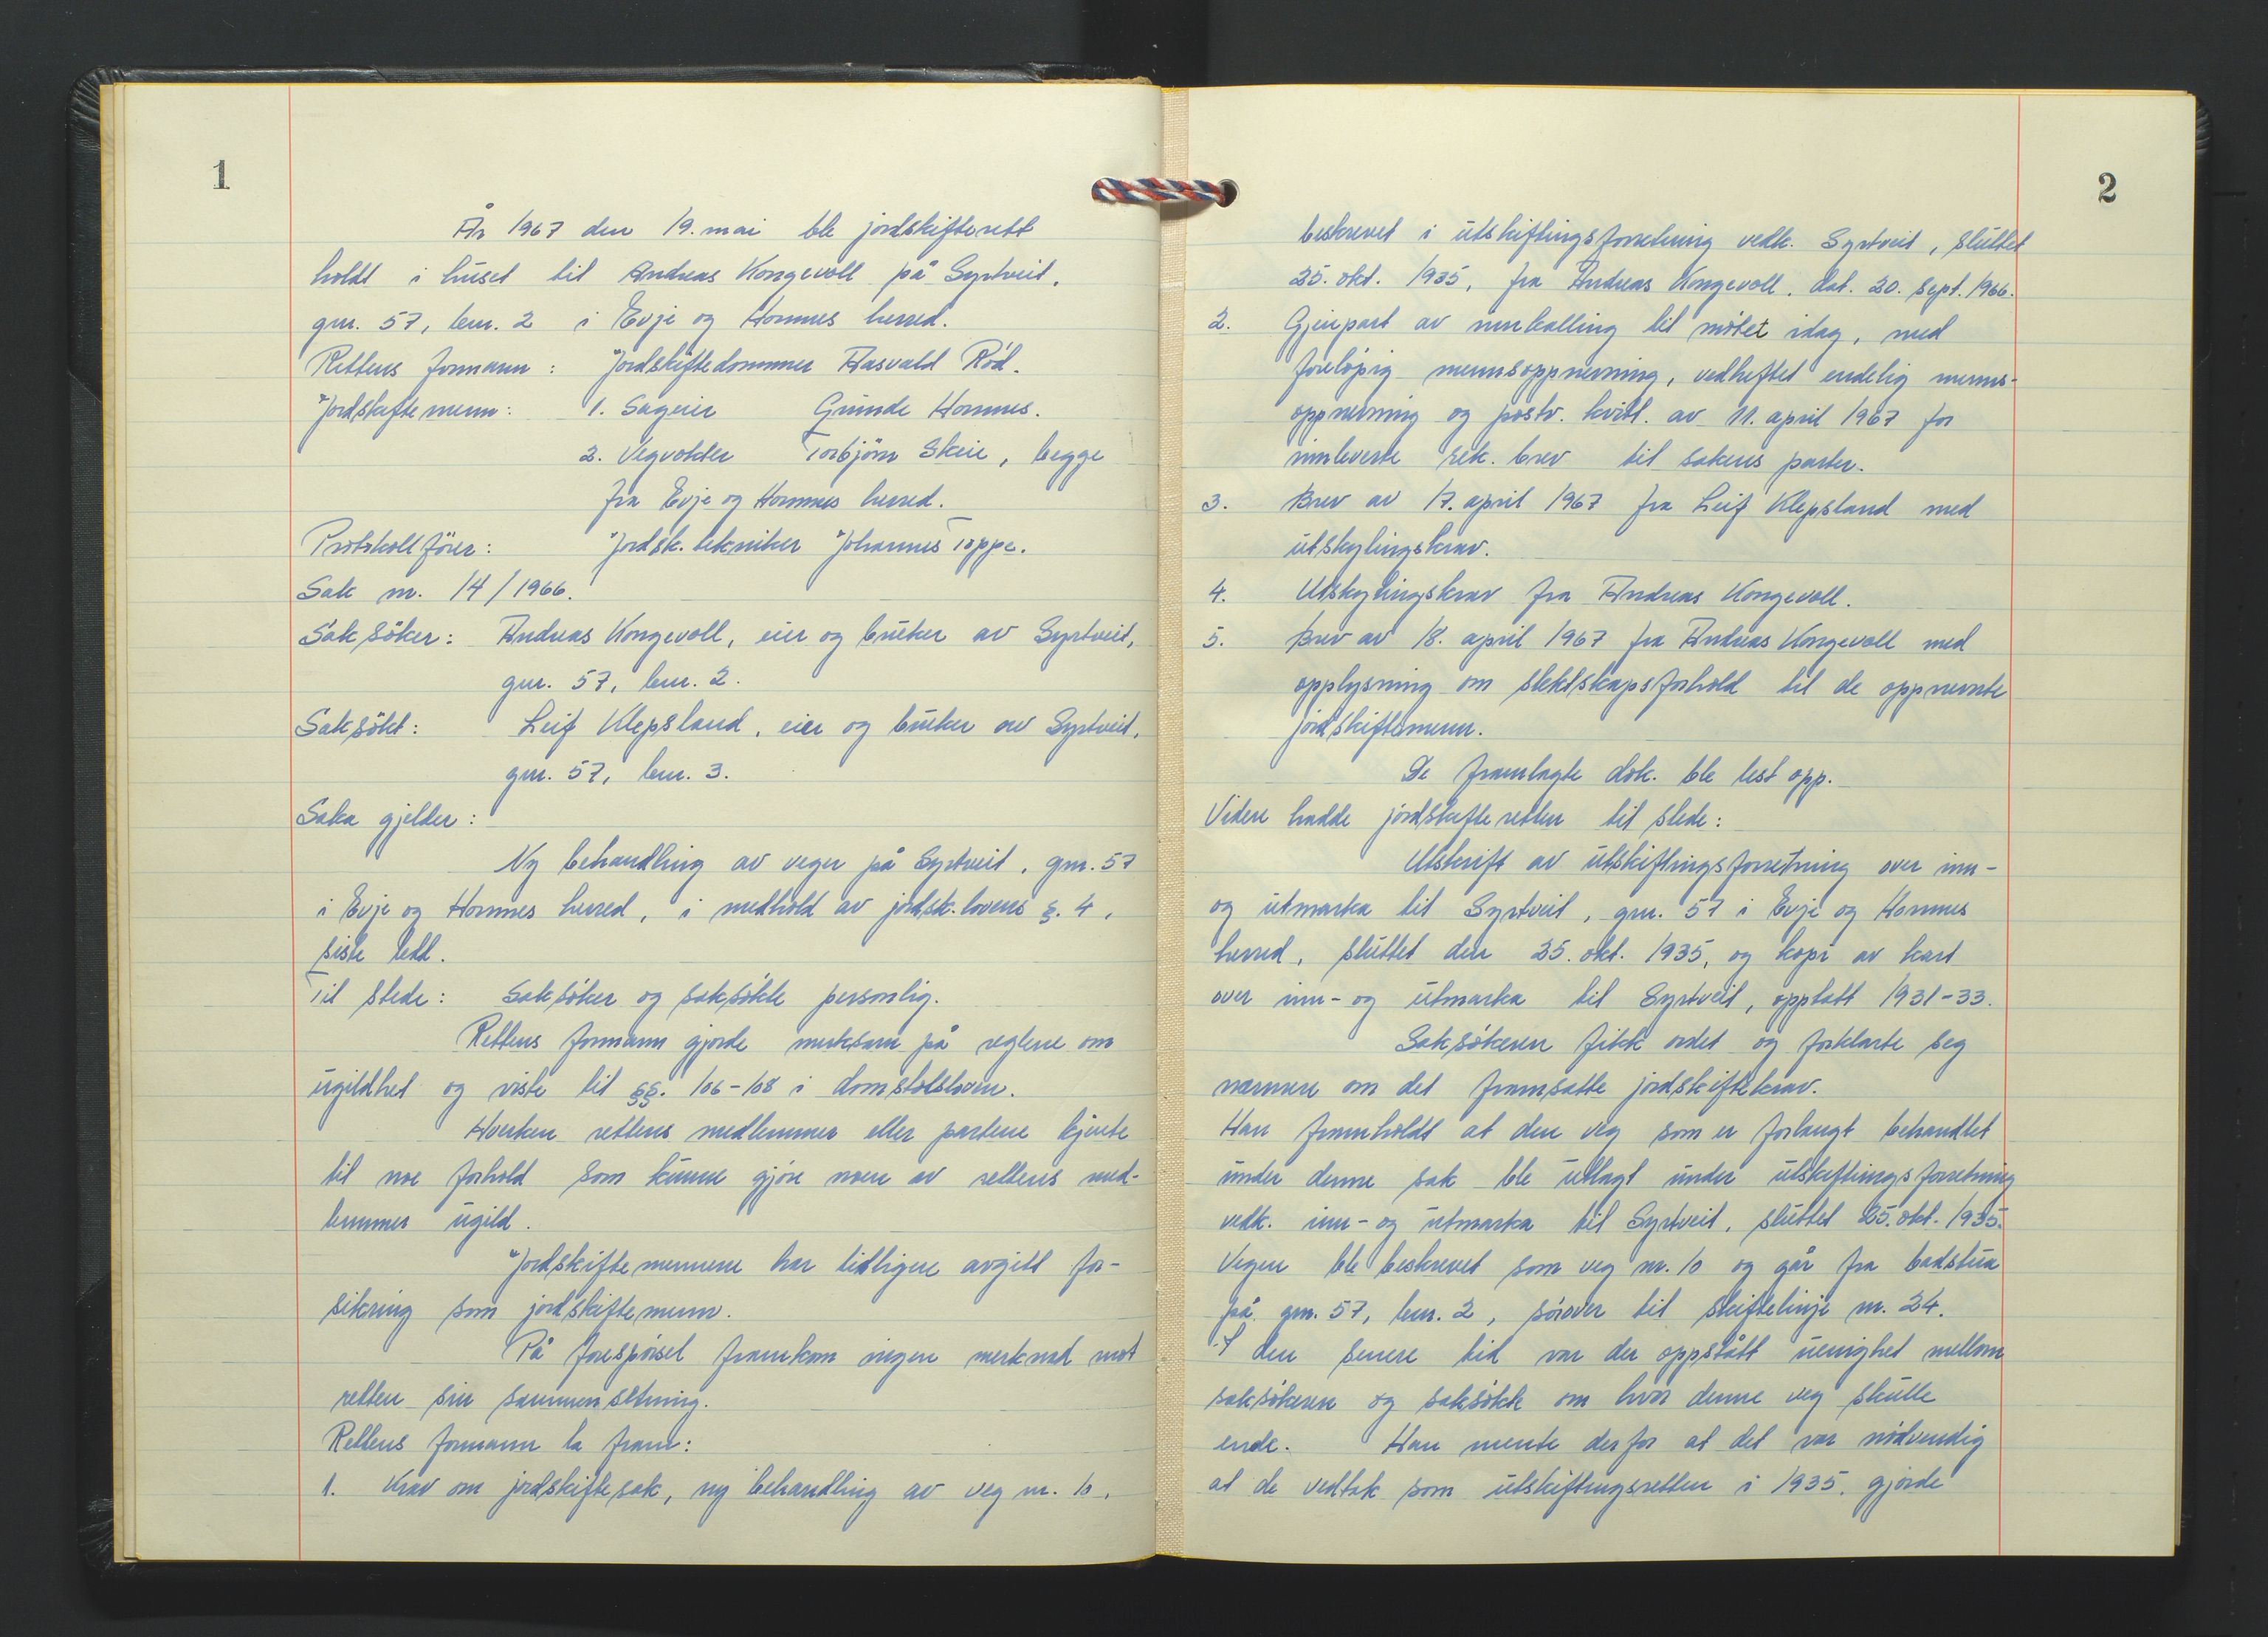 1
År 1967 den 19. mai ble jordskifterett
holdt i huset til Andreas Kongevoll på Syrtveit,
gnr. 57, bnr. 2 i Evje og Hornnes herred.
Rettens formann: Jordskiftedommer Aasvald Röd.
Jordskiftemenn: 1. Sageier Gunde Hornnes.
2. Vegvokter Torbjörn Skeie, begge
fra Evje og Hornnes herred.
Protokollförer: Jordsk. tekniker Johannes Toppe.
Sak nr. 14/1966.
Saksöker: Andreas Kongevoll, eier og bruker av Syrtveit,
gnr. 57, bnr. 2.
Saksökt: Leif Klepsland, eier og bruker av Syrtveit,
gnr. 57, bnr. 3.
Saka gjelder:
Ny behandling av veger på Syrtveit, gnr. 57
i Evje og Hornnes herred, i medhold av jordsk. lovens §. 4,
siste ledd.
Til stede: Saksöker og saksökte personlig.
Rettens formann gjorde merksam på reglene om
ugildhet og viste til §§. 106-108 i domstolsloven.
Hverken rettens medlemmer eller partene kjente
til noe forhold som kunne gjöre noen av rettens med-
lemmer ugild.
Jordskiftemennene har tidligere avgitt for-
sikring som jordskiftemenn.
På forespörsel framkom ingen merknad mot
retten sin sammensetning.
Rettens formann la fram:
1. Krav om jordskiftesak, ny behandling av veg nr. 10,
2
beskrevet i utskiftingsforretning vedk. Syrtveit, sluttet
25. okt. 1935, fra Andreas Kongevoll, dat. 20. sept. 1966.
2. Gjenpart av innkalling til mötet idag, med
forelöpig mennsoppnevning, vedheftet endelig menns-
oppnevning og postv. kvitt. av 11. april 1967 for
innleverte rek. brev til sakens parter.
3. Brev av 17. april 1967 fra Leif Klepsland med
utskytingskrav.
4. Utskytingskrav fra Andreas Kongevoll.
5. Brev av 18. april 1967 fra Andreas Kongevoll med
opplysning om slektskapsforhold til de oppnevnte
jordskiftemenn.
De framlagte dok. ble lest opp.
Videre hadde jordskifteretten til stede:
Utskrift av utskiftingsforretning over inn-
og utmarka til Syrtveit, gnr. 57 i Evje og Hornnes
herred, sluttet den 25. okt. 1935, og kopi av kart
over inn- og utmarka til Syrtveit, opptatt 1931-33.
Saksökeren fikk ordet og forklarte seg
nærmere om det framsatte jordskiftekrav.
Han framholdt at den veg som er forlangt behandlet
under denne sak ble utlagt under utskiftingsforretning
vedk. inn- og utmarka til Syrtveit, sluttet 25. okt. 1935.
Vegen ble beskrevet som veg nr. 10 og går fra badstua
på gnr. 57, bnr. 2, sörover til skiftelinje nr. 24.
I den senere tid var der oppstått uenighet mellom
saksökeren og saksökte om hvor denne veg skulle
ende. Han mente derfor at det var nödvendig
at de vedtak som utskiftingsretten i 1935, gjorde